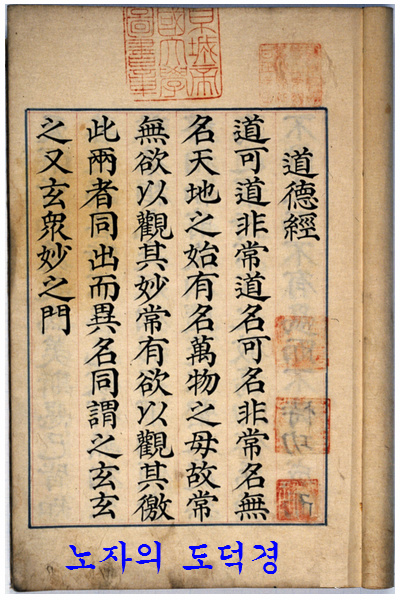 京城帝
國大學
圖書章
道德經
道可道非常道名可名非常名無
名天地之始有名萬物之母故常
無欲以觀其妙常有欲以觀其徼
此兩者同出而異名同謂之玄玄
之又玄衆妙之門
노자의 도덕경